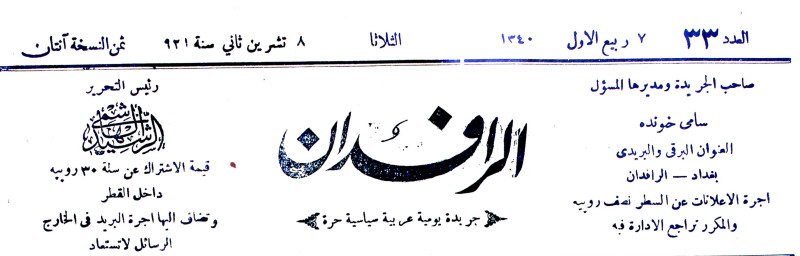 العدد ٣٣ ٧ ربيع الاول ١٣٤٠ الثلاثا ٨ تشرين ثاني سنة ٩٢١ ثمن النسخة آنتان
صاحب الجريدة ومديرها المسؤل
سامى خونده
العنوان البرقى والبريدى
بغداد — الرافدان
اجرة الاعلانات عن السطر نصف روبيه
والمكرر تراجع الادارة فيه
الرافدان
جريدة يومية عربية سياسية حرة
رئيس التحرير
الرشيد الهاشمي
قيمة الاشتراك عن سنة ٣٠ روبيه
داخل القطر
وتضاف اليها اجرة البريد فى الخارج
الرسائل لاتستعاد